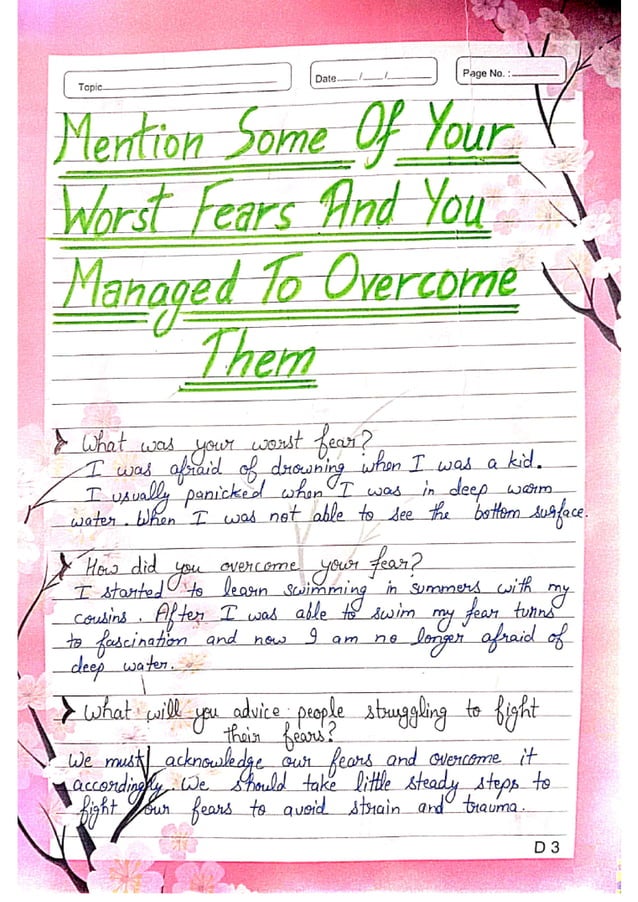 Topic
Date / /
Page No. :
Mention Some Of Your
Worst Fears And You
Managed To Overcome
Them
What was your worst fear?
I was afraid of drowning when I was a kid.
I usually panicked when I was in deep warm
water. When I was not able to see the bottom surface.
How did you overcome your fear?
I started to learn swimming in summers with my
cousins. After I was able to swim my fear turns
to fascination and now I am no longer afraid of
deep water.
What will you advice people struggling to fight
their fears?
We must acknowledge our fears and overcome it
accordingly. We should take little steady steps to
fight our fears to avoid strain and trauma.
D 3